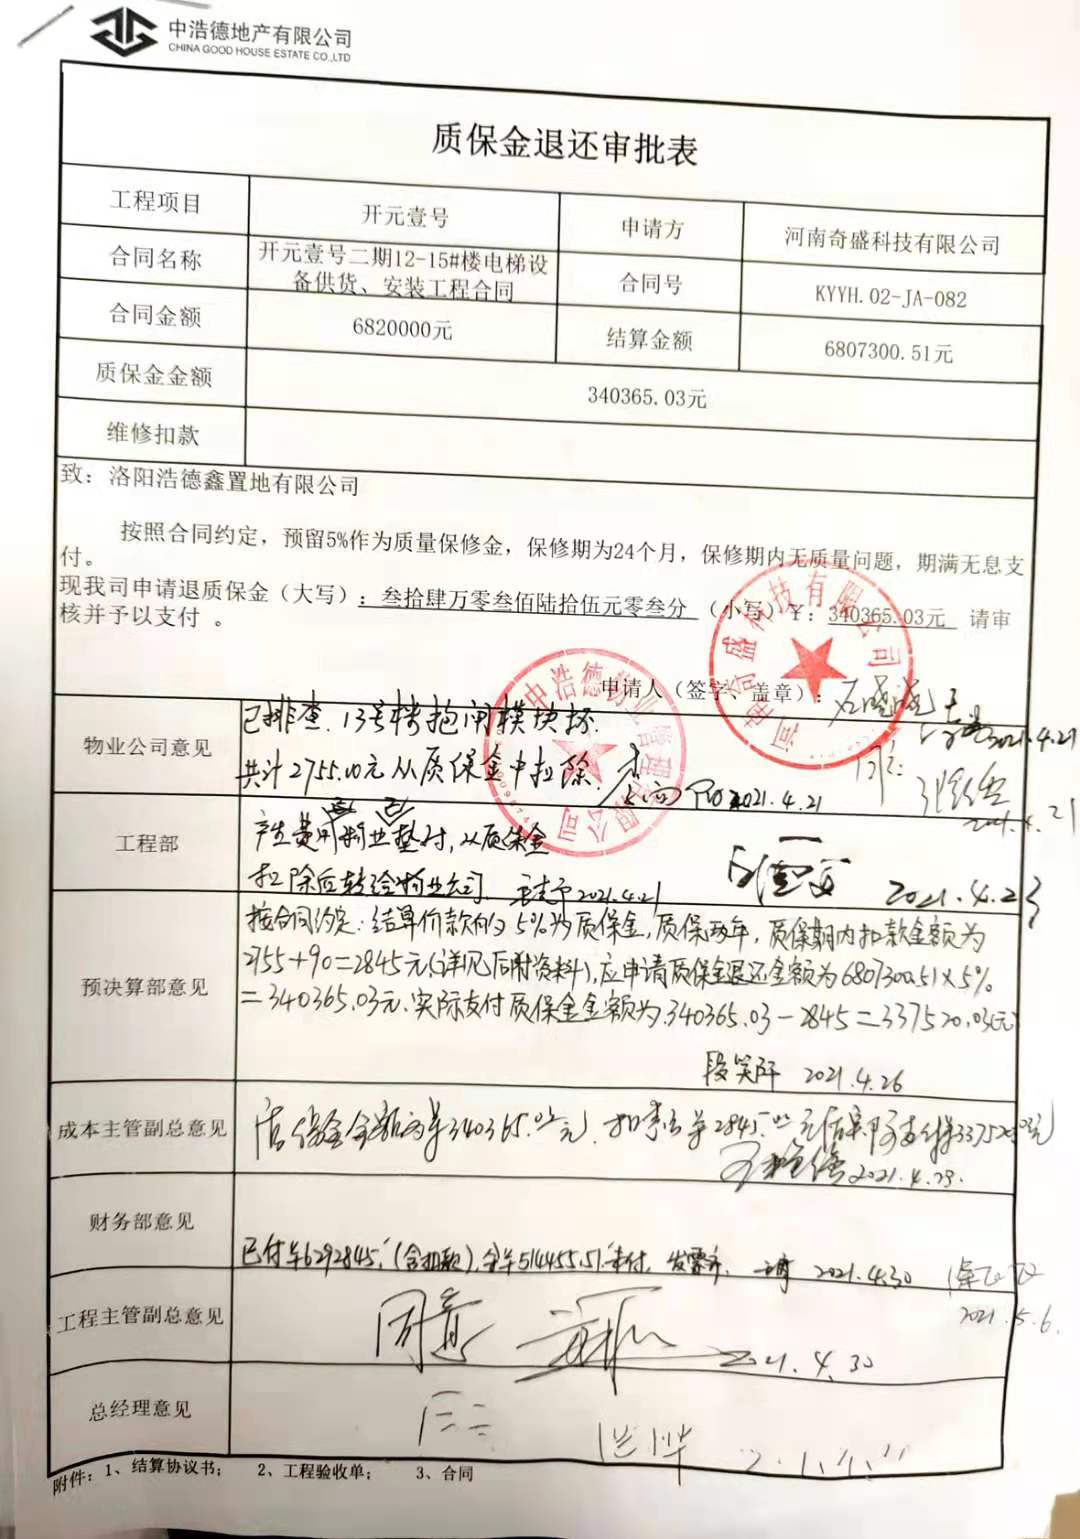 中浩德地产有限公司
CHINA GOOD HOUSE ESTATE CO.,LTD
质保金退还审批表
工程项目 开元壹号 申请方 河南奇盛科技有限公司
合同名称 开元壹号二期12-15#楼电梯设备供货、安装工程合同 合同号 KYYH.02-JA-082
合同金额 6820000元 结算金额 6807300.51元
质保金金额 340365.03元
维修扣款
致：洛阳浩德鑫置地有限公司
按照合同约定，预留5%作为质量保修金，保修期为24个月，保修期内无质量问题，期满无息支
付。
现我司申请退质保金（大写）：叁拾肆万零叁佰陆拾伍元零叁分 （小写）￥：340365.03元 请审
核并予以支付 。
申请人（签字、盖章）：
2021.4.21
物业公司意见
已排查.13号楼抱闸模块坏.
共计2755.00元从质保金中扣除.
2021.4.21
2021.4.21
工程部
产生费用物业垫付，从质保金
扣除后转给物业公司. 2021.4.21
2021.4.23
预决算部意见
按合同约定：结算价款的5%为质保金，质保两年，质保期内扣款金额为
2755+90=2845元(详见后附资料)，应申请质保金退还金额为6807300.51×5%
=340365.03元.实际支付质保金金额为340365.03-2845=337520.03元
2021.4.26
成本主管副总意见
2021.4.29.
财务部意见
已付￥6292845.(含扣款),余￥514455.51未付. 2021.4.30
2021.5.6.
工程主管副总意见
同意
2021.4.30
总经理意见
附件：1、结算协议书； 2、工程验收单； 3、合同